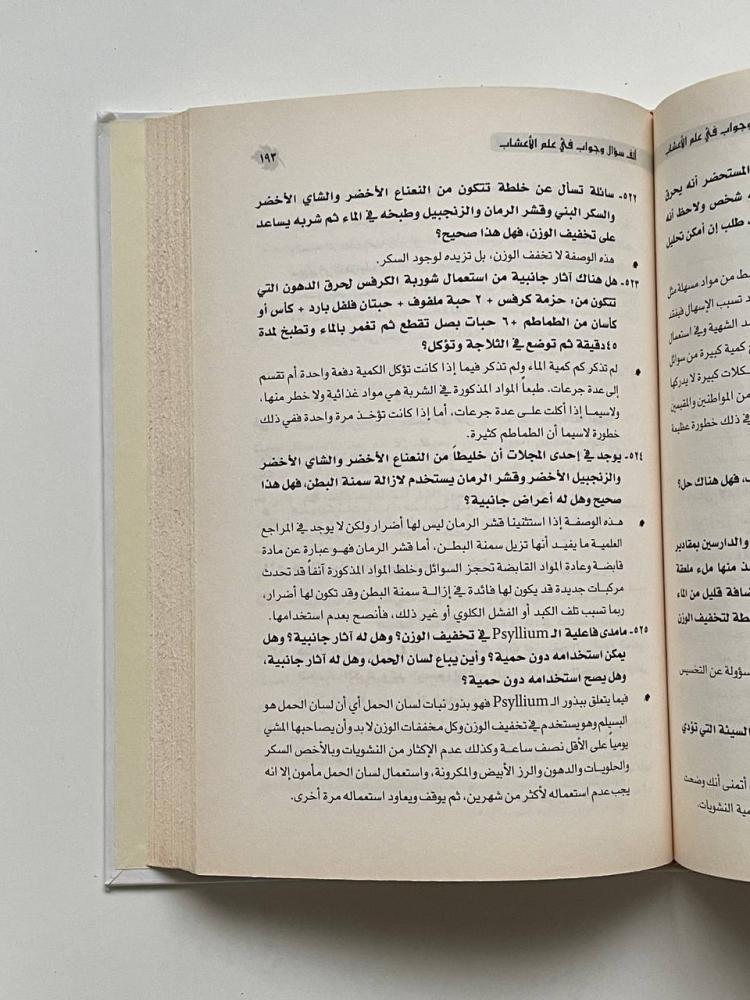 ألف سؤال وجواب في علم الأعشاب
١٩٣
٥٢٢- سائلة تسأل عن خلطة تتكون من النعناع الأخضر والشاي الأخضر
والسكر البني وقشر الرمان والزنجبيل وطبخه في الماء ثم شربه يساعد
على تخفيف الوزن، فهل هذا صحيح؟
• هذه الوصفة لا تخفف الوزن، بل تزيده لوجود السكر.
٥٢٣- هل هناك آثار جانبية من استعمال شوربة الكرفس لحرق الدهون التي
تتكون من: حزمة كرفس + ٢ حبة ملفوف + حبتان فلفل بارد + كأس أو
كأسان من الطماطم +٦ حبات بصل تقطع ثم تغمر بالماء وتطبخ لمدة
٤٥دقيقة ثم توضع في الثلاجة وتؤكل؟
• لم تذكر كم كمية الماء ولم تذكر فيما إذا كانت تؤكل الكمية دفعة واحدة أم تقسم
إلى عدة جرعات. طبعاً المواد المذكورة في الشربة هي مواد غذائية ولا خطر منها،
ولاسيما إذا أكلت على عدة جرعات، أما إذا كانت تؤخذ مرة واحدة ففي ذلك
خطورة لاسيما أن الطماطم كثيرة.
٥٢٤- يوجد في إحدى المجلات أن خليطاً من النعناع الأخضر والشاي الأخضر
والزنجبيل الأخضر وقشر الرمان يستخدم لازالة سمنة البطن، فهل هذا
صحيح وهل له أعراض جانبية؟
• هذه الوصفة إذا استثنينا قشر الرمان ليس لها أضرار ولكن لا يوجد في المراجع
العلمية ما يفيد أنها تزيل سمنة البطن، أما قشر الرمان فهو عبارة عن مادة
قابضة وعادة المواد القابضة تحجز السوائل وخلط المواد المذكورة آنفاً قد تحدث
مركبات جديدة قد يكون لها فائدة في إزالة سمنة البطن وقد تكون لها أضرار،
ربما تسبب تلف الكبد أو الفشل الكلوي أو غير ذلك، فأنصح بعدم استخدامها.
٥٢٥- مامدى فاعلية الـ Psyllium في تخفيف الوزن؟ وهل له آثار جانبية؟ وهل
يمكن استخدامه دون حمية؟ وأين يباع لسان الحمل، وهل له آثار جانبية،
وهل يصح استخدامه دون حمية؟
• فيما يتعلق ببذور الـ Psyllium فهو بذور نبات لسان الحمل أي أن لسان الحمل هو
البسيلم وهو يستخدم في تخفيف الوزن وكل مخففات الوزن لا بد وأن يصاحبها المشي
يومياً على الأقل نصف ساعة وكذلك عدم الإكثار من النشويات وبالأخص السكر
والحلويات والدهون والرز الأبيض والمكرونة، واستعمال لسان الحمل مأمون إلا انه
يجب عدم استعماله لأكثر من شهرين، ثم يوقف ويعاود استعماله مرة أخرى.
وجواب في علم الأعشاب
المستحضر أنه يحرق
شخص ولاحظ أنه
طلب إن أمكن تحليل
من مواد مسهلة مثل
تسبب الإسهال فيفقد
الشهية وفي استعمال
كمية كبيرة من سوائل
مشكلات كبيرة لا يدركها
من المواطنين والمقيمين
في ذلك خطورة عظيمة
فهل هناك حل؟
والدارسين بمقادير
منها ملء ملعقة
إضافة قليل من الماء
لتخفيف الوزن
مسؤولة عن التخسيس
السيئة التي تؤدي
أتمنى أنك وضحت
النشويات.